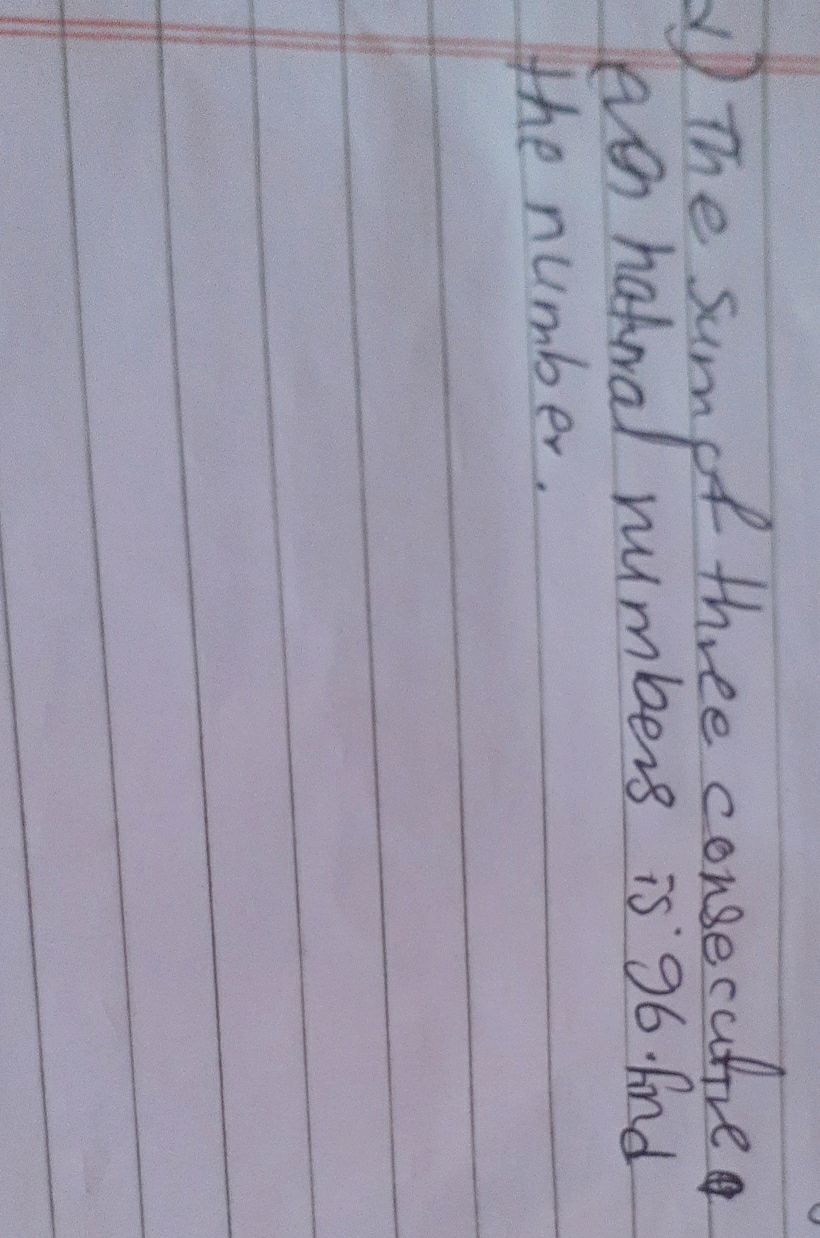 2) The sum of three consecutive
even natural numbers is 96. find
the number.